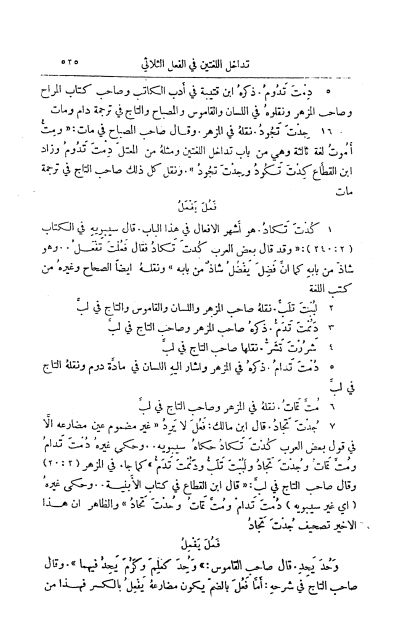 تداخل اللغتين في الفعل الثلاثي ٥٢٥
٥ دِمْتَ تَدُومُ. ذكرهُ ابن قتيبة في أدب الكاتب وصاحب كتاب المراح
وصاحب المزهر ونقلوهُ في اللسان والقاموس والمصباح والتاج في ترجمة دام ومات
١٦ جِدْتَ تَجُودُ. نقلهُ في المزهر. وقال صاحب الصباح في مات: « ومِتُّ
أَموتُ لغة ثالثة وهي من باب تداخل اللغتين ومثلهُ من المعتل دِمْتَ تَدُومُ وزاد
ابن القطاع كِدْتَ تَكُودُ وجِدتَ تجُودُ ». ونقل كل ذلك صاحب التاج في ترجمة
مات
فَعُلَ يَفْعَلُ
١ كُدْتَ تَكَادُ. هو أشهر الافعال في هذا الباب. قال سيبويه في الكتاب
(٢: ٢٤٠): « وقد قال بعض العرب كُدْتَ تَكادُ فقال فَعُلْتَ تَفْعَلُ ٠٠ وهو
شاذ من بابه كما انَّ فَضِلَ يَفْضُلُ شاذ من بابه » ونقلهُ ايضاً الصحاح وغيره من
كتب اللغة
٢ لَبُبْتَ تَلَبُّ. نقلهُ صاحب المزهر واللسان والقاموس والتاج في لبَّ
٣ دَمُمْتَ تَدَمُّ. ذكرهُ صاحب المزهر وصاحب التاج في لبَّ
٤ شَرُرْتَ تَشَرُّ. نقلها صاحب التاج في لبَّ
٥ دُمْتَ تَدامُ. ذكرهُ في المزهر واشار اليه اللسان في مادَّة دوم ونقلهُ التاج
في لبَّ
٦ مُتَّ تَماتُ. نقلهُ في المزهر وصاحب التاج في لبَّ
٧ جُدْتَ تَجَادُ. قال ابن مالك: فَعُلَ لا يَرِدُ « غير مضموم عين مضارعه الَّا
في قول بعض العرب كُدْتَ تَكادُ حكاهُ سيبويه ٠٠ وحكى غيرهُ دُمْتَ تَدامُ
ومُتَّ تَماتُ وجُدْتَ تَجادُ ولَبُبْتَ تَلَبُّ ودَمُمْتَ تَدَمُّ » كما جاء في المزهر (٢: ٢٠)
وقال صاحب التاج في لبَّ: « قال ابن القطاع في كتاب الأبنية ٠٠ وحكى غيرهُ
( اي غير سيبويه ) دُمْتَ تَدامُ ومُتَّ تَماتُ وحُدْتَ تَحَادُ » والظاهر ان هذا
الاخير تصحيف جُدْتَ تَجَادُ
فَعُلَ يَفْعِلُ
وَحُدَ يَحِدُ. قال صاحب القاموس: « وَحِدَ كعَلِمَ وكَرُمَ يَحِدُ فيهما ». وقال
صاحب التاج في شرحه: أمَّا فَعُلَ بالضمّ يكون مضارعهُ يَفْعِلُ بالكسر فهذا من